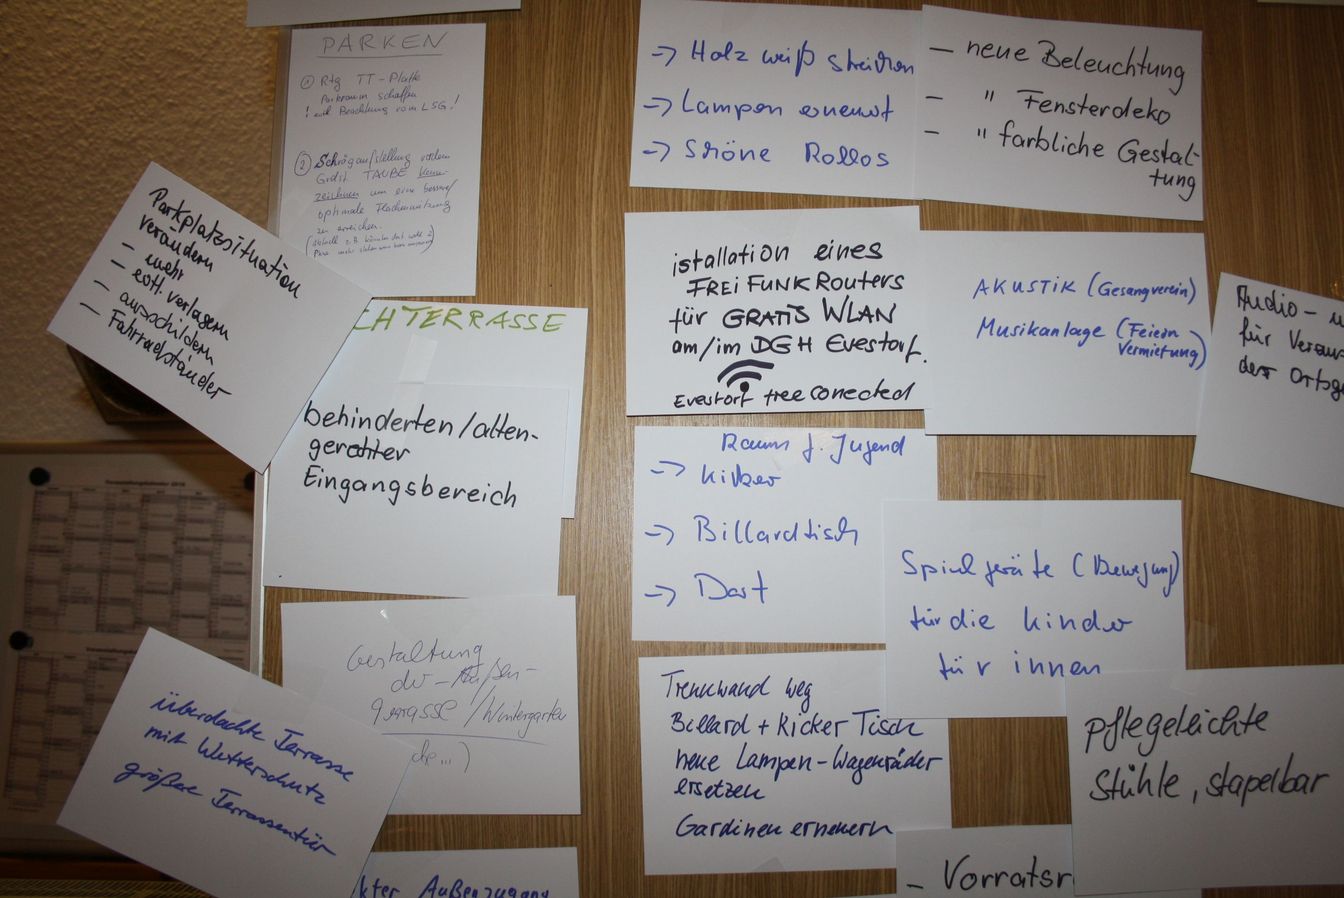 PARKEN
① Rtg TT-Platte
Parkraum schaffen
! mit Beachtung vom LSG!
② Schrägaufstellung vor dem
Grdst. TAUBE kenn-
zeichnen um eine bessere/
optimale Flächennutzung
zu erreichen.
Parkplatzsituation
verändern
- mehr
- evtl. verlagern
- ausschildern
- Fahrradständer
CHTERRASSE
behinderten/alten-
gerechter
Eingangsbereich
Gestaltung
der Außen-
terrasse/Wintergarten
überdachte Terrasse
mit Wetterschutz
größere Terrassentür
kter Außenzugang
-> Holz weiß streichen
-> Lampen erneuert
-> Schöne Rollos
- neue Beleuchtung
- " Fensterdeko
- " farbliche Gestal-
tung
istallation eines
FREIFUNKRouters
für GRATIS WLAN
am/im DGH Evestorf.
Evestorf freeconected
AKUSTIK (Gesangverein)
Musikanlage (Feiern
Vermietung)
Audio-
für Verans
der Ortsge
Raum f. Jugend
-> Kicker
-> Billardtisch
-> Dart
Spielgeräte (Bewegung)
für die Kinder
für innen
Trennwand weg
Billard + Kicker Tisch
neue Lampen-Wagenräder
ersetzen
Gardinen erneuern
pflegeleichte
Stühle, stapelbar
- Vorratsr